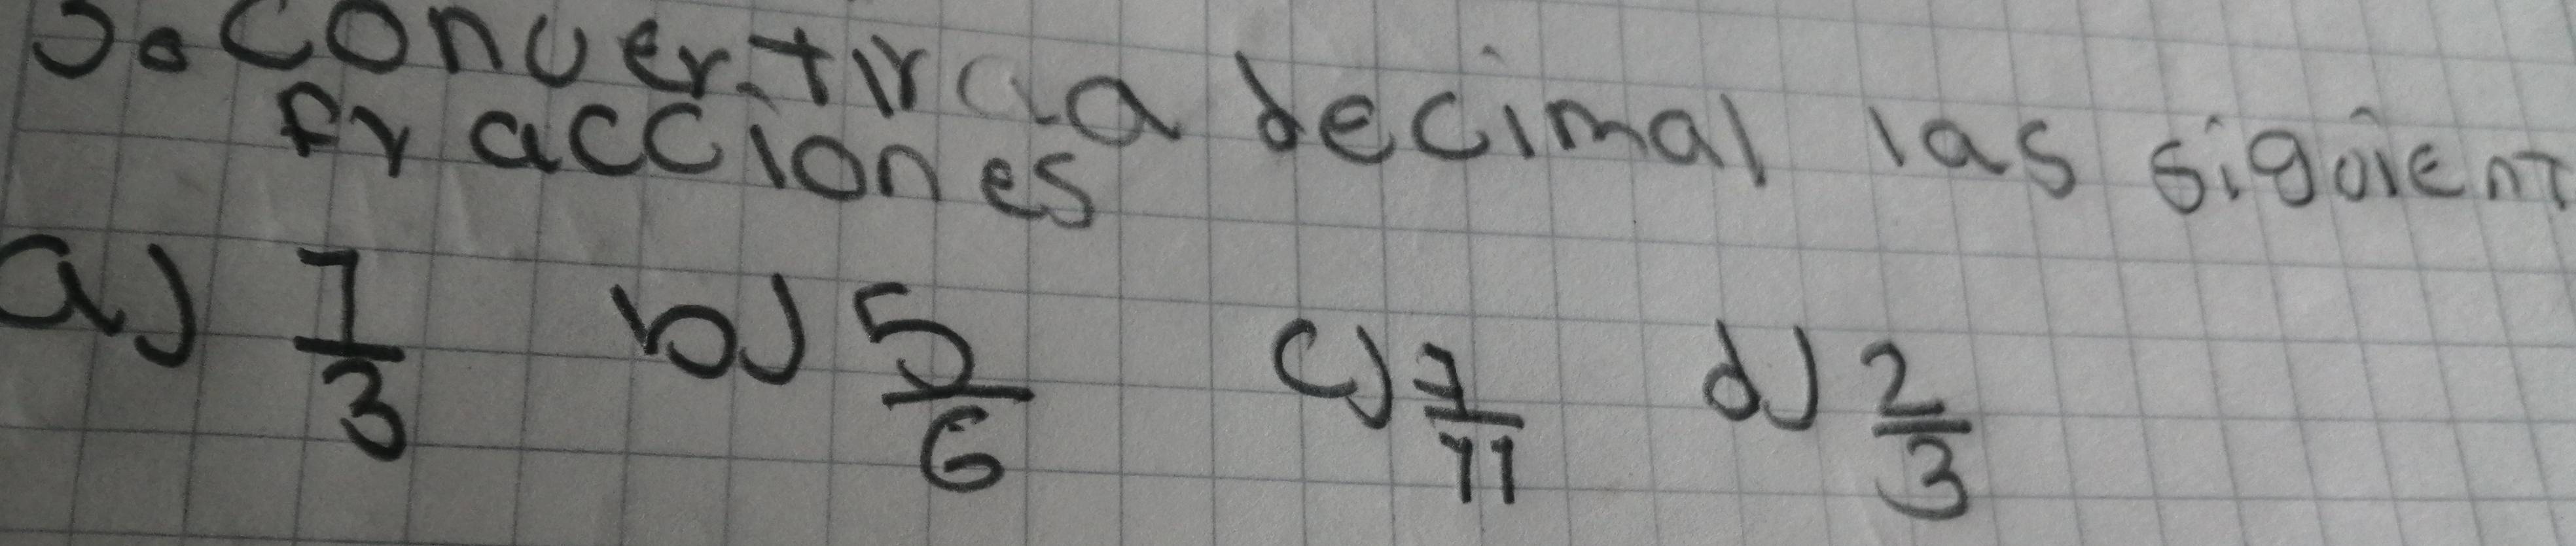 Convertir a decimal las siguient
fracciones
a) 1/3 b) 5/6 c) 7/11 d) 2/3